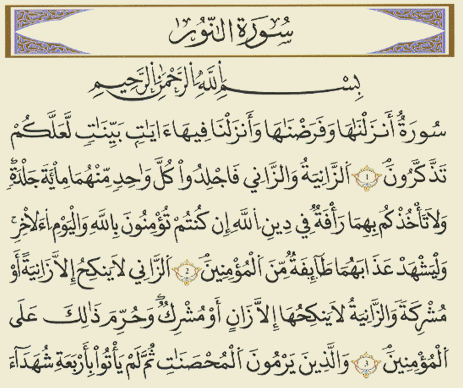 سُورَةُ النُّورِ
بِسْمِ اللَّهِ الرَّحْمَٰنِ الرَّحِيمِ
سُورَةٌ أَنزَلْنَاهَا وَفَرَضْنَاهَا وَأَنزَلْنَا فِيهَا ءَايَٰتٍ بَيِّنَٰتٍ لَّعَلَّكُمْ
تَذَكَّرُونَ ۝١ اَلزَّانِيَةُ وَالزَّانِي فَاجْلِدُوا كُلَّ وَاحِدٍ مِّنْهُمَا مِائَةَ جَلْدَةٍ
وَلَا تَأْخُذْكُم بِهِمَا رَأْفَةٌ فِي دِينِ اللَّهِ إِن كُنتُمْ تُؤْمِنُونَ بِاللَّهِ وَالْيَوْمِ اِءَلَاخِرِ
وَلْيَشْهَدْ عَذَابَهُمَا طَآئِفَةٌ مِّنَ اَلْمُؤْمِنِينَ ۝٢ اَلزَّانِي لَا يَنكِحُ إِلَّا زَانِيَةً أَوْ
مُشْرِكَةً وَالزَّانِيَةُ لَا يَنكِحُهَا إِلَّا زَانٍ أَوْ مُشْرِكٌ وَحُرِّمَ ذَٰلِكَ عَلَى
اَلْمُؤْمِنِينَ ۝٣ وَالَّذِينَ يَرْمُونَ اَلْمُحْصَنَٰتِ ثُمَّ لَمْ يَأْتُوا بِأَرْبَعَةِ شُهَدَآءَ